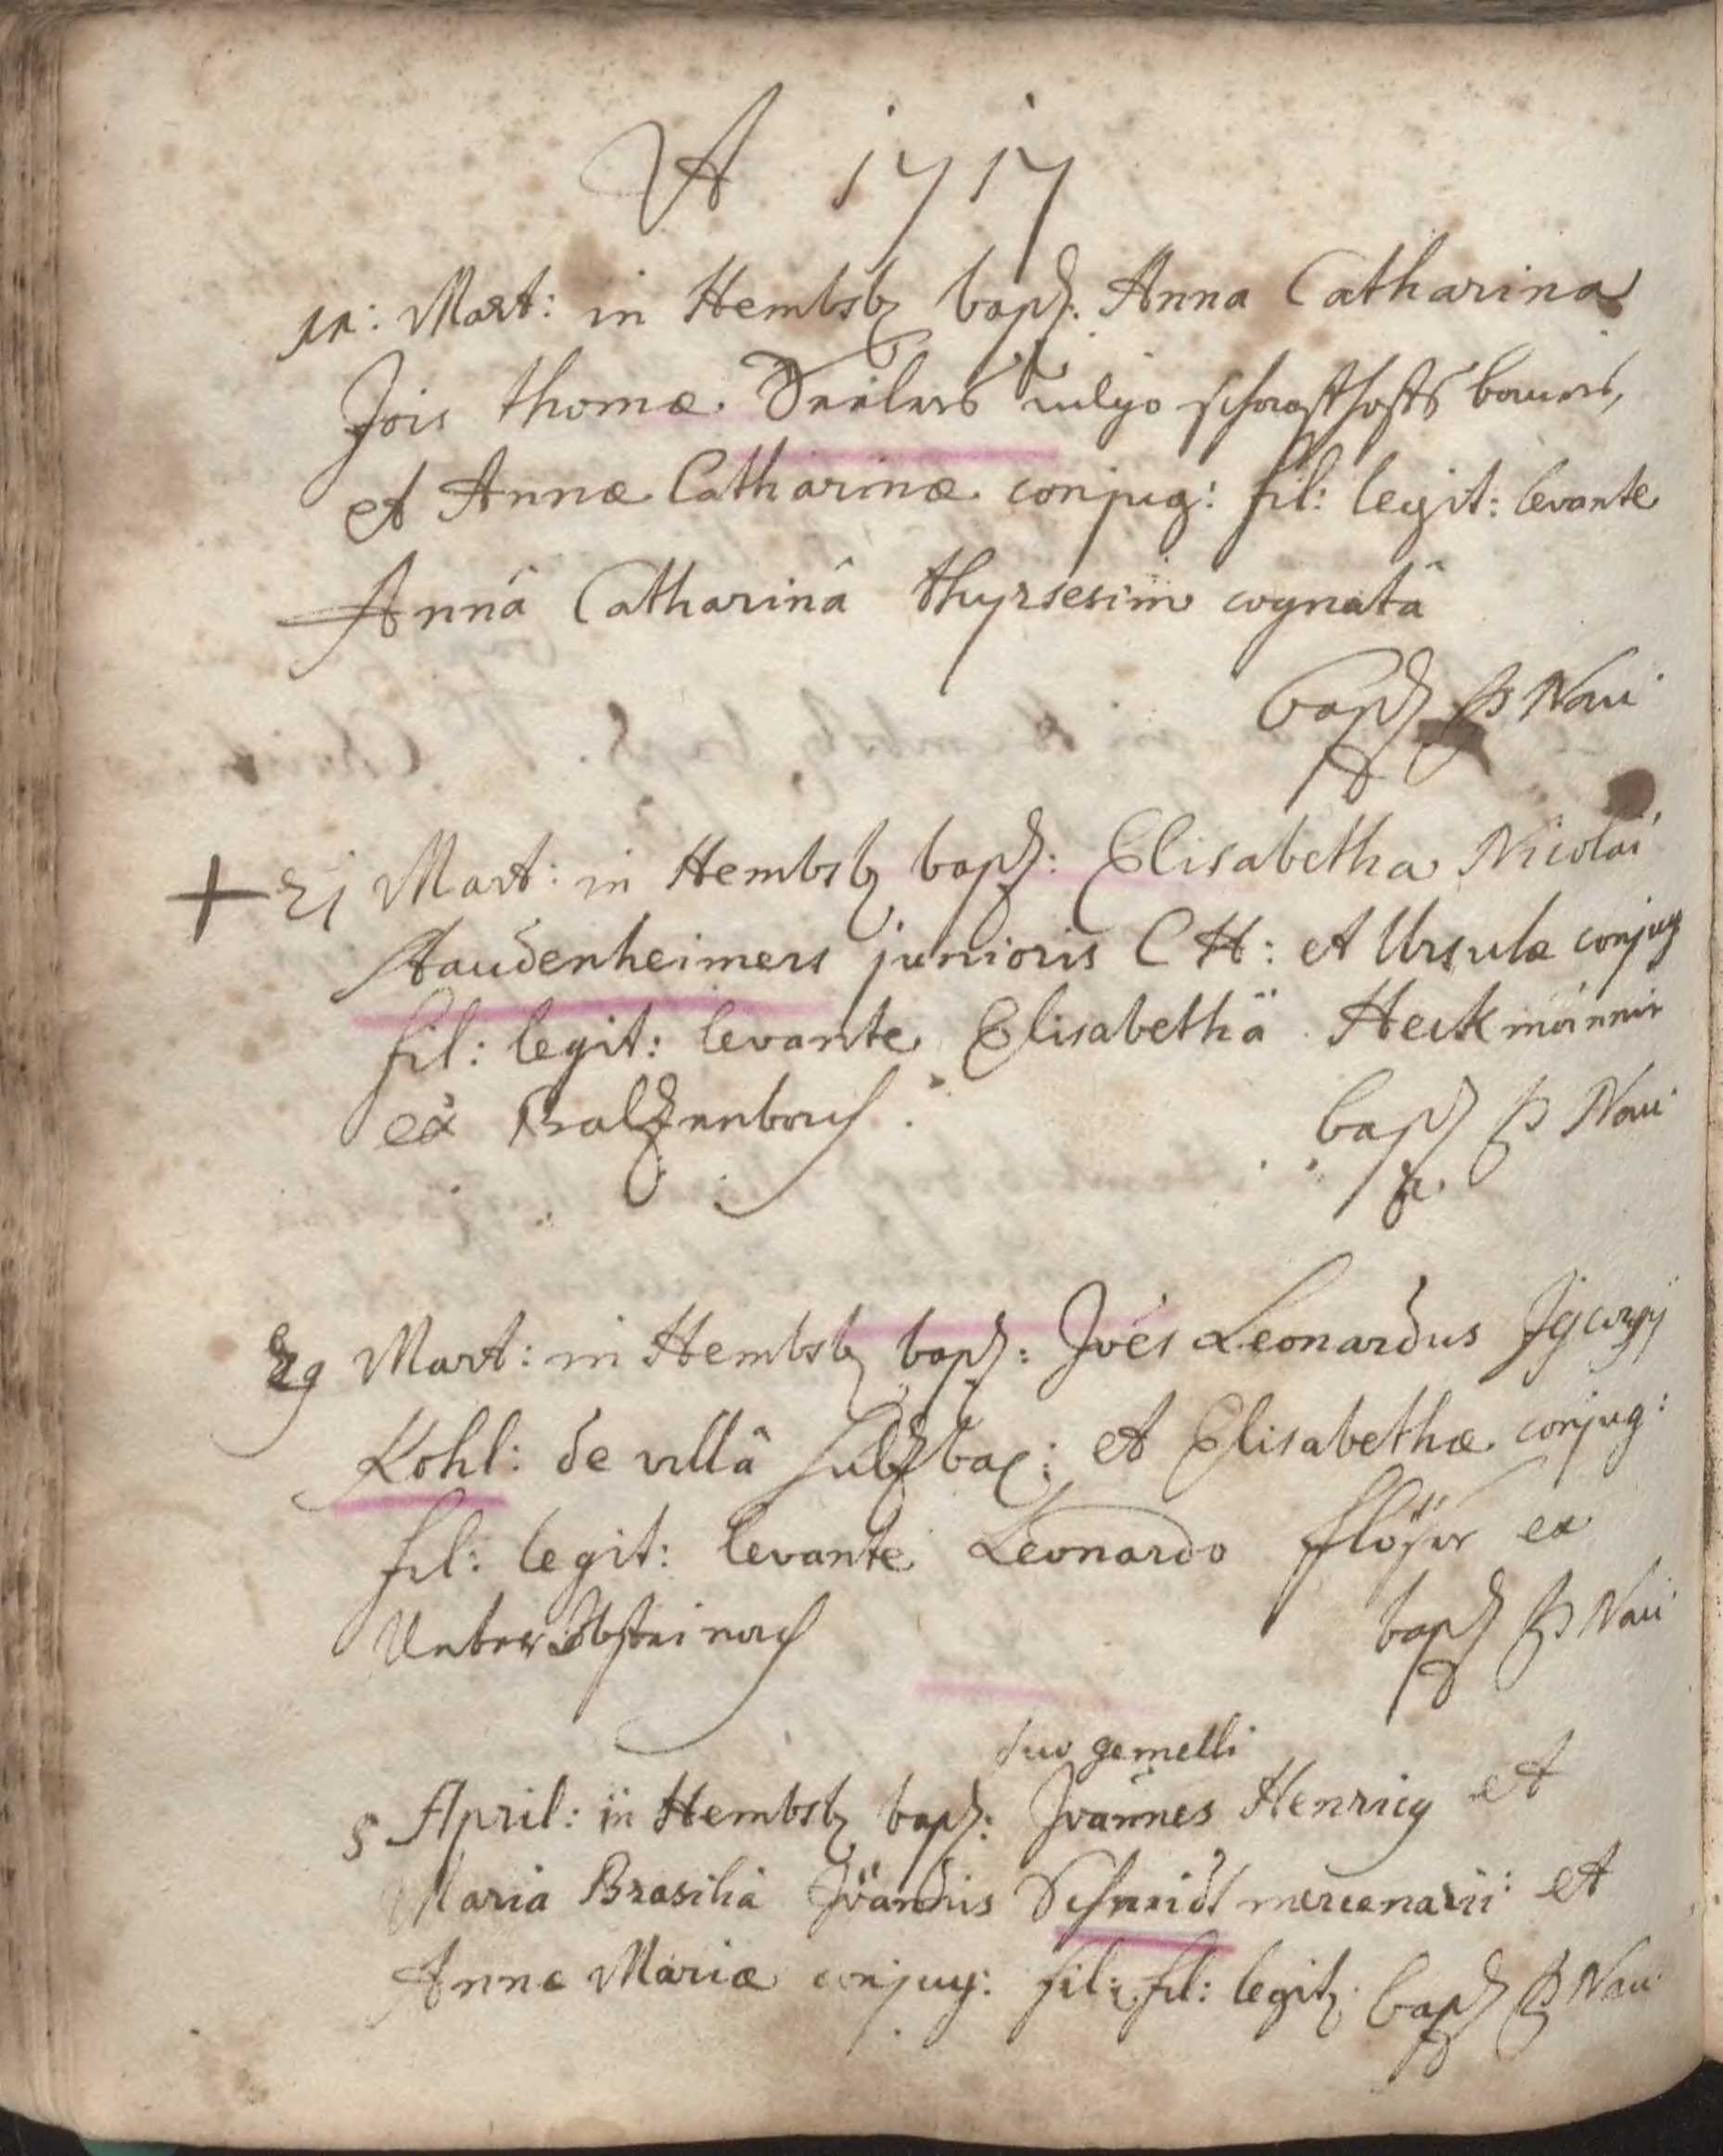 A 1717
11: Mart: in Hembsb bapt: Anna Catharina
Jois thomæ Seilers vulgo
et Annæ Catharinæ conjug: fil: legit: levante
Annâ Catharinâ thyrsesin cognatâ
bapt P Navi
+ 21 Mart: in Hembsb bapt: Elisabetha Nicolai
Staudenheimers junioris C H: et Ursulæ conjug
fil: legit: levante Elisabethä Heckmännin
ex Baltzenbach.
bapt P Navi
29 Mart: in Hembsb bapt: Joes Leonardus
Kohl: de villâ sultzbac: et Elisabethæ conjug:
fil: legit: levante Leonardo flöser ex
Unter Absteinach
bapt P Navi
duo gemelli
5 April: in Hembsb bapt: Joannes Henricq et
Maria Brasilia Joannis Schmidt mercenarii et
Annæ Mariæ conjug: fil: fil: legit: bapt P Navi